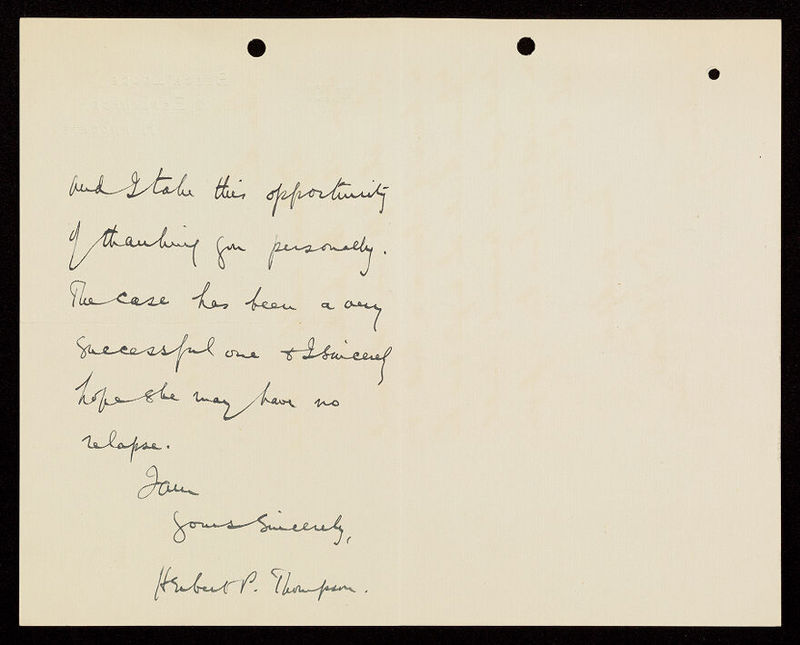 and I take this opportunity
of thanking you personally.
The case has been a very
successful one & I sincerely
hope she may have no
relapse.
I am
Yours Sincerely,
Herbert P. Thompson.